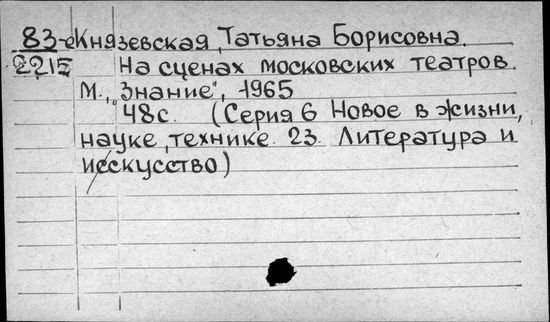 83-е Князевская, Татьяна Борисовна.
2215 На сценах московских театров.
М., „Знание", 1965
48с. (Серия 6 Новое в жизни,
науке, технике. 23. Литература и
исскусство)